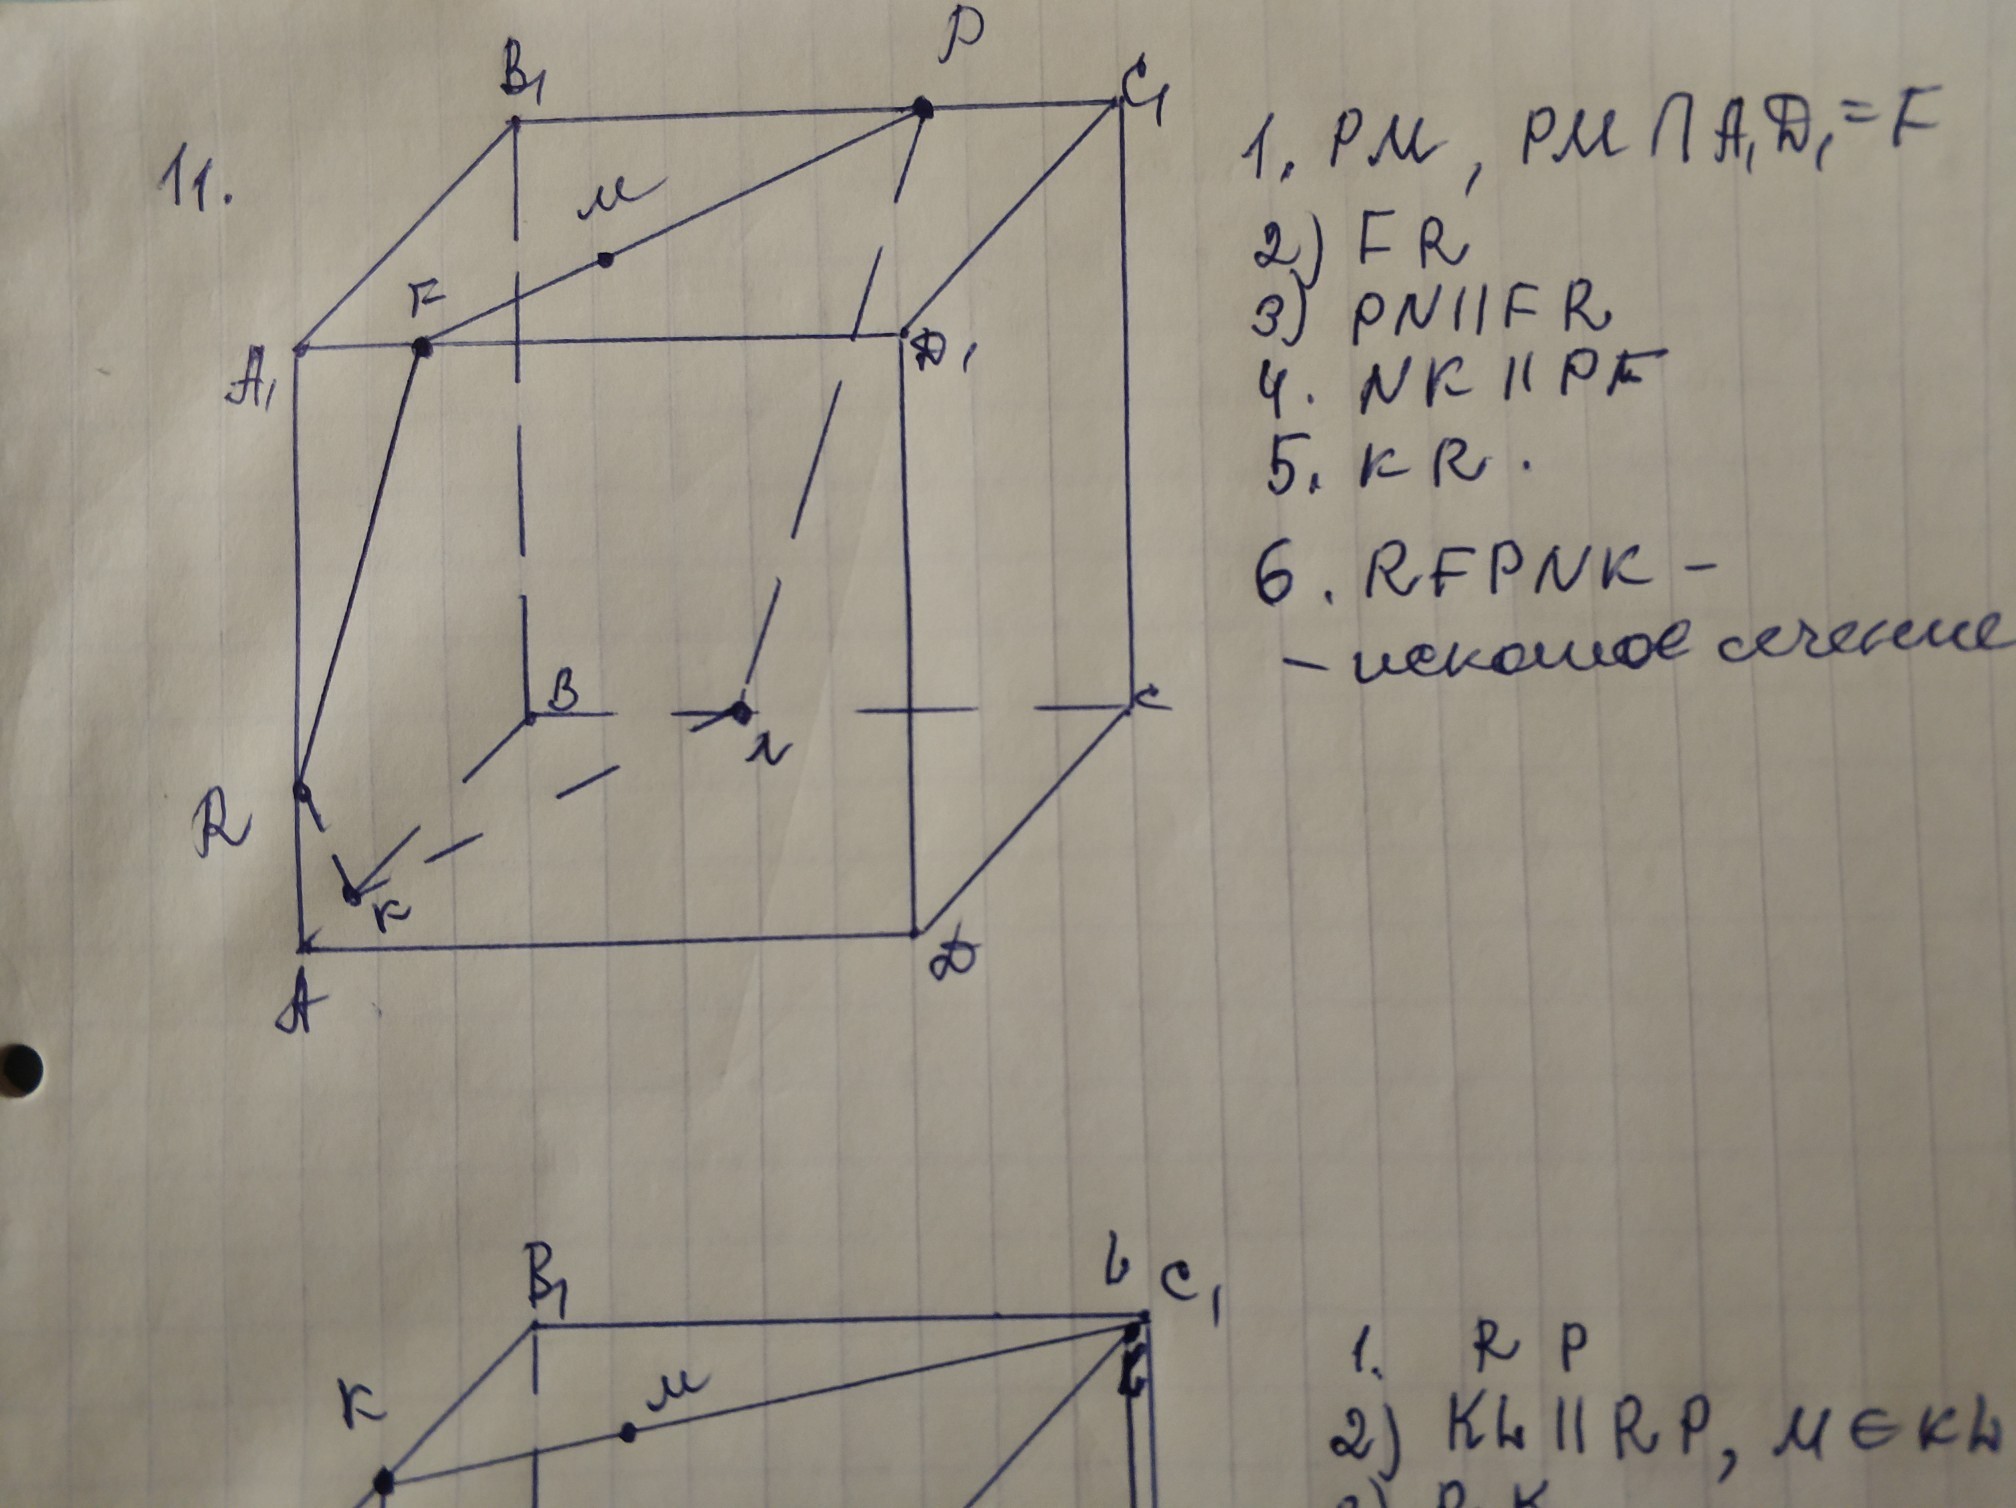 11.
B₁
P
C₁
M
F
A₁
D₁
B
N
C
R
K
A
D
1. PM, PM ∩ A₁D₁ = F
2) FR
3) PN || FR
4. NK || PF
5. KR.
6. RFPNK -
- искомое сечение
B₁
L
C₁
K
M
1. RP
2) KL || RP, M ∈ KL
3) RK